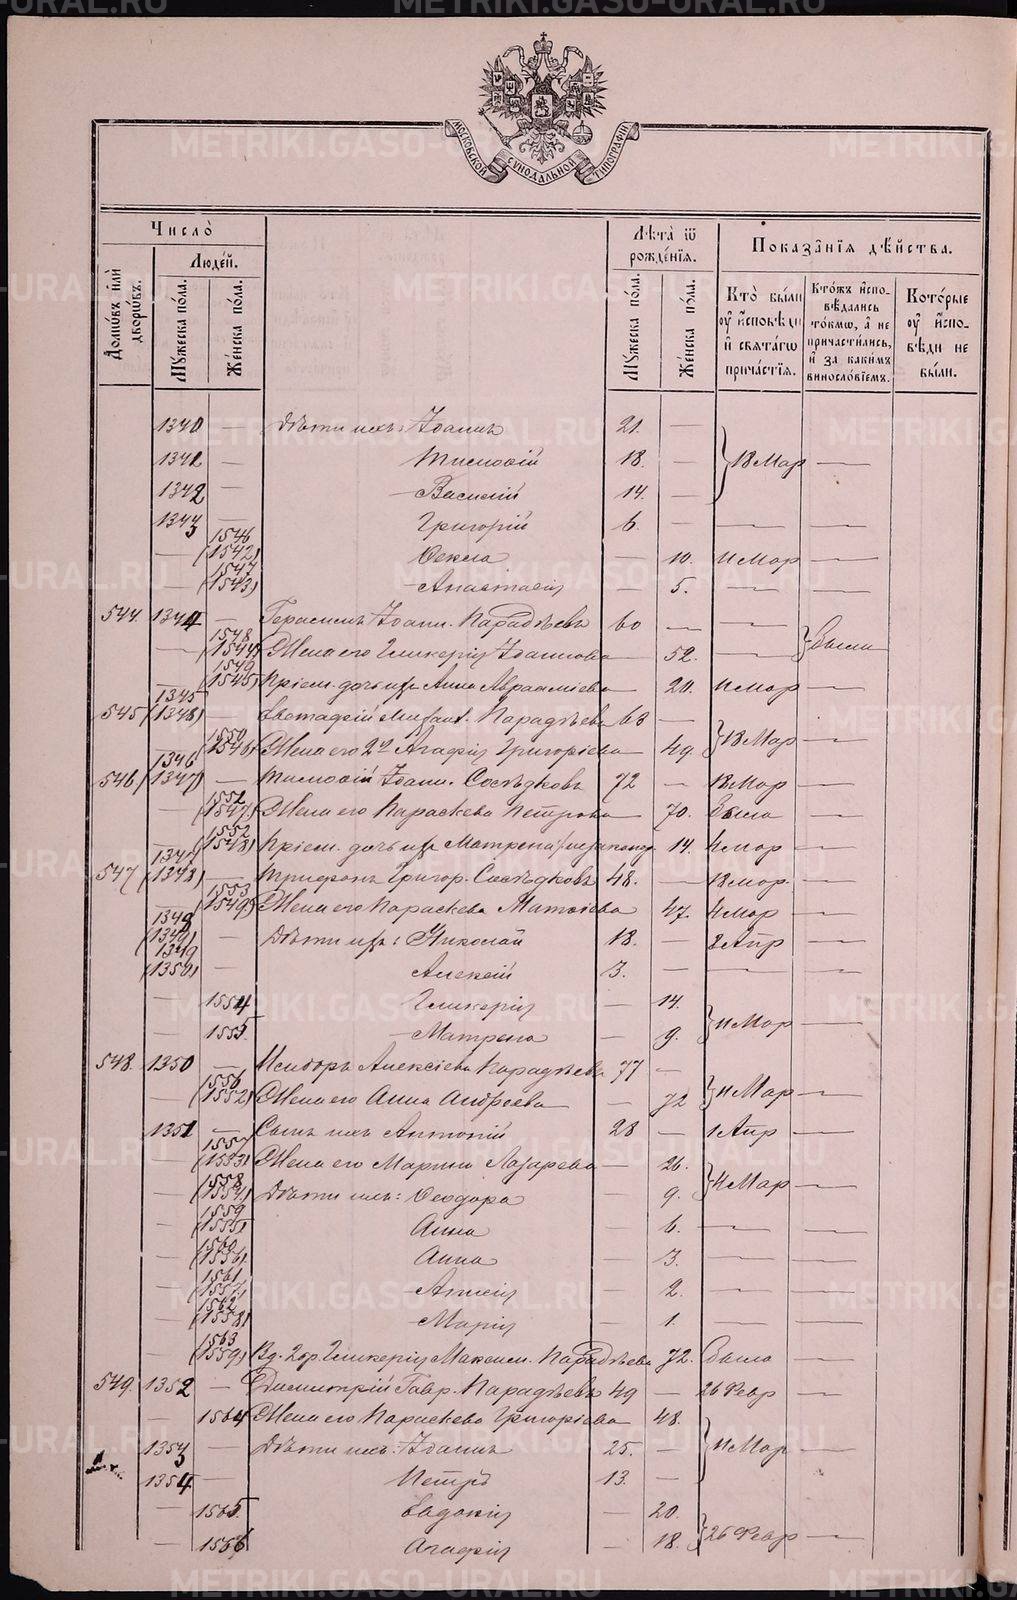 МОСКОВСКОЙ СѴНОДАЛЬНОЙ ТИПОГРАФІИ
Число̀
Людей.
Домѡвъ и҆лѝ дворѡ́въ.
Мꙋжеска по́ла.
Же́нска по́ла.
Лѣ́та ѿ рожде́нїѧ.
Мꙋжеска по́ла.
Же́нска по́ла.
Показа̂нїѧ дѣ́йства.
Кто̀ бы́ли ᲂу҆ и҆сповѣди и҆ свѧта́гѡ прича́стїѧ.
Кто́жъ и҆сповѣдались то́кмѡ, а҆ не причасти́лись, и҆ за каки́мъ винослѡ́вїемъ.
Кото́рые ᲂу҆ и҆́сповѣди не бы́ли.
1340 — Дѣти ихъ: Іоаннъ 21. —
1341 — Тимоѳій 18. — } 13 Мар —
1342 — Василій 14. —
1343 — Григорій 6. — — —
— 1546 (1542) Ѳекла — 10. 11 Мар —
— 1547 (1543) Анастасія — 5. — —
544. 1344 — Герасимъ Іоанн. Парадѣевъ 60 — —
— 1548 (1544) Жена его Гликерія Іоаннова — 52. — } Была
— 1549 (1545) Пріем. дочь ихъ Анна Аврааміева — 20. 11 Мар —
545 1345 (1346) — Парадѣевъ 63 —
— 1550 (1546) Жена его 2я Агафія Григоріева — 49. } 13 Мар —
546 1346 (1347) — Тимоѳій Іоанн. Сосѣдковъ 72 — 13 Мар —
— (1547) Жена его Параскева Петрова — 70. Была —
— 1552 (1548) Пріем. дочь ихъ Матрена — 14. 11 Мар —
547 1347 (1348) — Трифонъ Григор. Сосѣдковъ 48. — 13 Мар. —
— 1553 (1549) Жена его Параскева Матѳіева — 47. 11 Мар —
1348 (1349) — Дѣти ихъ: Николай 18. — 1 Апр —
1349 (1350) — Алексій 3. — — —
— 1554 Гликерія — 14.
— 1555. Матрена — 9. } 11 Мар —
548. 1350 — Исидоръ Алексіевъ Парадѣевъ 77 —
— 1556 (1552) Жена его Анна Андреева — 72 } 11 Мар —
1351 — Сынъ ихъ Антоній 28 — 1 Апр —
— 1557 (1553) Жена его Марина Лазарева — 26.
— 1558 (1554) Дѣти ихъ: Ѳеодора — 9. } 11 Мар —
— 1559 (1555) Анна — 6. — —
— 1560 (1556) Анна — 3. — —
— 1561 (1557) — 2. — —
— 1562 (1558) Марія — 1. — —
— 1563 (1559) Вд. Гликерія Максим. Парадѣева 72. Была —
549. 1352 — Димитрій Гавр. Парадѣевъ 49 — 26 Февр —
— 1564 Жена его Параскева Григоріева — 48.
1353 — Дѣти ихъ: Іоаннъ 25. — } 11 Мар —
1354 — Петръ 13. —
— 1565 Евдокія — 20.
— 1566 Агафія — 18. } 26 Февр —
METRIKI.GASO-URAL.RU